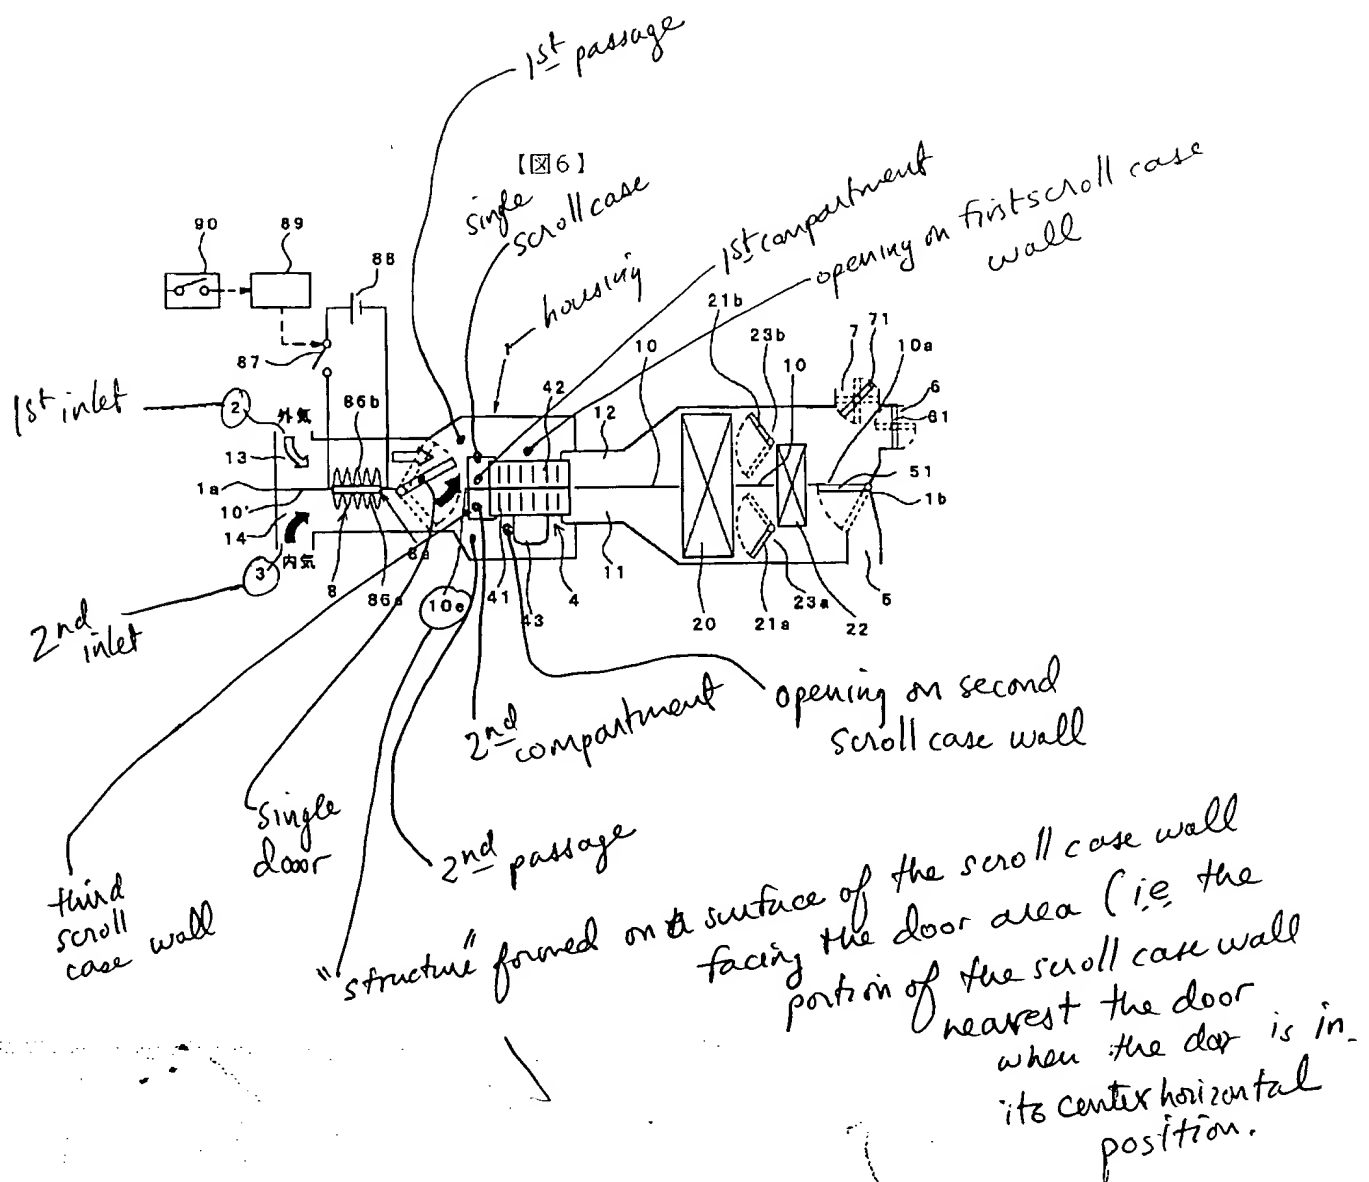 1st passage
【図6】
single
scroll case
1st compartment
opening on first scroll case
wall
housing
90
89
88
87
21b
23b
10
7
71
10a
6
61
1st inlet
2
外気
86b
1
42
12
10
13
1a
10'
14
51
1b
3
内気
8
8a
86a
10e
41
43
4
11
20
21a
23a
22
5
2nd
inlet
2nd
compartment
opening on second
scroll case wall
single
door
2nd passage
third
scroll
case wall
"structure" formed on a surface of the scroll case wall
facing the door area (i.e the
portion of the scroll case wall
nearest the door
when the door is in
its center horizontal
position.